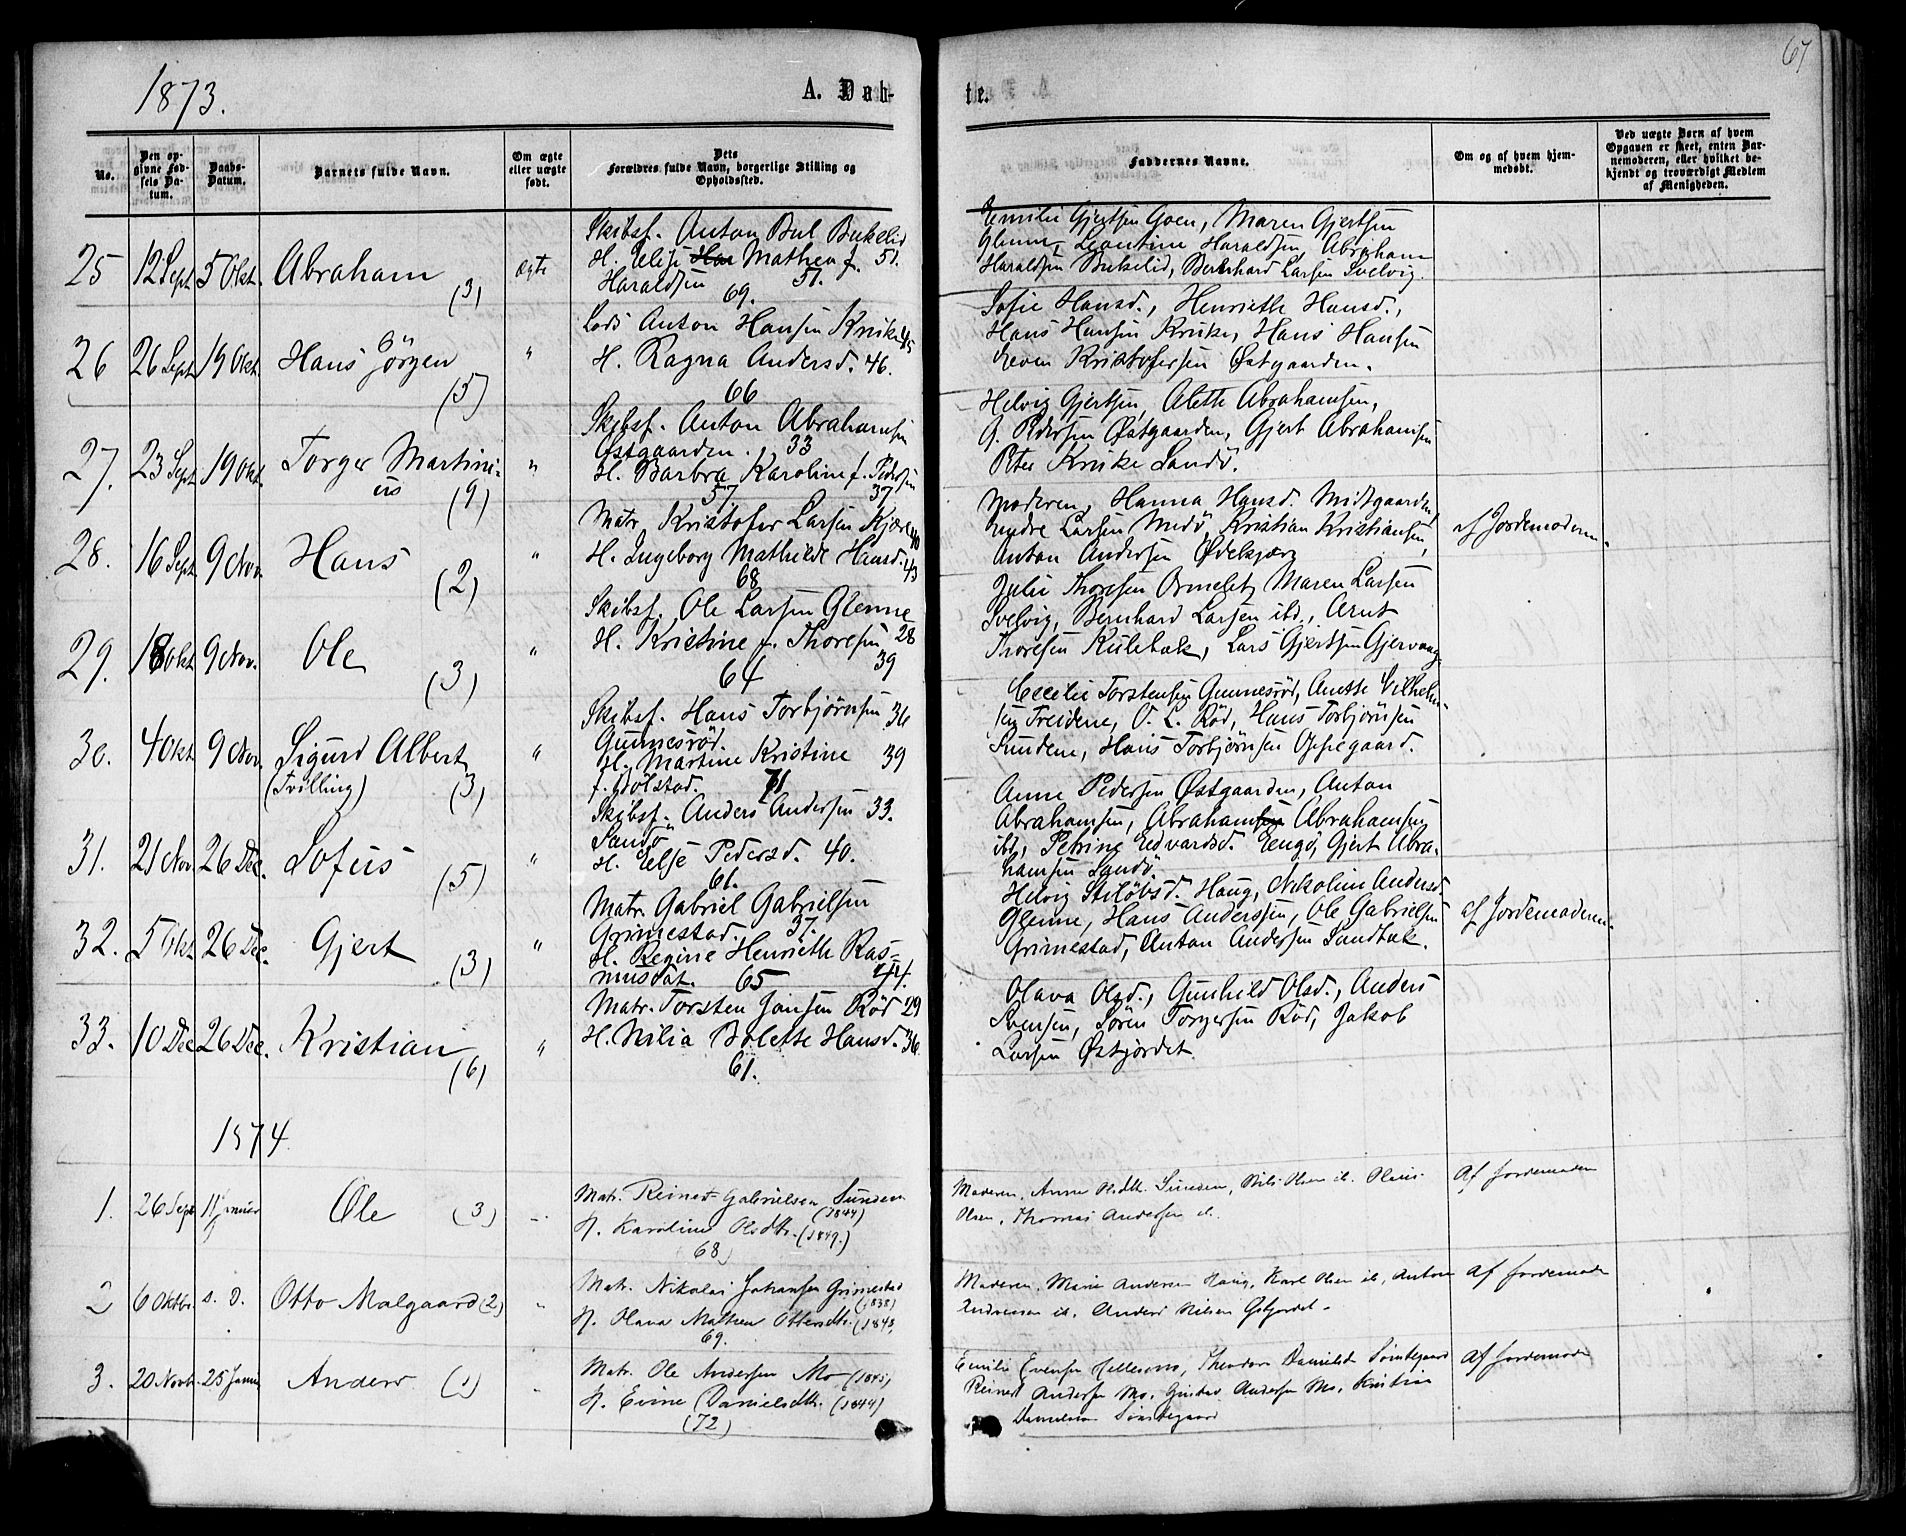 1873.
A. Dåb-
te.
67
No.
Den op-
givne Fød-
sels Da-
tum.
Daabs-
Datum.
Barnets fulde Navn.
Om ægte
eller uægte
født.
Dets
Forældres fulde Navn, borgerlige Stilling og
Opholdssted.
Faddernes Navne.
Om og af hvem hjem-
medøbt.
Ved uægte Børn af hvem
Opgaven er skeet, enten Bar-
nemoderen, eller hvilket be-
kjendt og troværdigt Medlem
af Menigheden.
25 12 Sept 5 Okt. Abraham (3) ægte
Skibsf. Anton Bul Bukelid
H. Elise Mathea f. 51.
Haraldsen 51.
69.
Emilie Gjertsen Goen, Maren Gjertsen
Glenne, Leontine Haraldsen, Abraham
Haraldsen Bukelid, Bernhard Larsen Svelvig.
26 26 Sept 19 Okt. Hans Jörgen (5) "
Lods Anton Hansen Kruke 45
H. Ragna Andersd. 46.
66
Sofie Hansd., Henriette Hansd.,
Hans Hansen Kruke, Hans Hansen
Even Kristofersen Østgaarden.
27. 23 Sept 19 Okt. Torger Martini-
us (9) "
Skibsf. Anton Abrahamsen
Østgaarden. 33
H. Barbra Karoline f. Pedersen
57 37
Helvig Gjertsen, Alette Abrahamsen,
G. Pedersen Østgaarden, Gjert Abrahamsen
Peter Kruke Sandø.
28. 16 Sept 9 Nov. Hans (2) "
Matr. Kristofer Larsen Kjær 40
H. Ingeborg Mathilde Hansd. 43
68
Moderen, Hanna Hansd. Midtgaarden,
Andre Larsen Medø, Kristian Kristiansen,
Anton Andersen Ødekjær
af Jordemoderen.
29. 18 Okt 9 Nov. Ole (3) "
Skibsf. Ole Larsen Glenne
H. Kristine f. Thoresen 28
64 39
Julie Thoresen Ormelet, Maren Larsen
Svelvig, Bernhard Larsen ibd., Arnt
Thoresen Kulebæk, Lars Gjertsen Gjervaag
30. 4 Okt 9 Nov. Sigurd Albert
(Tvilling) (3) "
Skibsf. Hans Torbjørnsen 36
Gunnesrød.
H. Martine Kristine 39
f. Holstad. 71
Cecilie Torstensen Gunnesrød, Anette Vilhelm-
sen Treidene, O. L. Rød, Hans Torbjörnsen
Sundene, Hans Torbjörnsen Oppegaard.
31. 21 Nov. 26 Dec. Sofus (5) "
Skibsf. Anders Andersen 33.
Sandø
H. Else Pedersd. 40.
61.
Anne Pedersen Østgaarden, Anton
Abrahamsen, Abraham Abrahamsen
ibd., Petrine Edvardsd. Engø, Gjert Abra-
hamsen Sandø.
32. 5 Okt 26 Dec. Gjert (3) "
Matr. Gabriel Gabrielsen
Grimestad. 37.
H. Regine Henriette Ras-
musdat. 65 44.
Helvig Stilöbsd. Haug, Nikoline Andersd.
Glenne, Hans Anderssen, Ole Gabrielsen
Grimestad, Anton Andersen Sandbæk.
af Jordemoderen.
33. 10 Dec 26 Dec. Kristian (6) "
Matr. Torsten Jansen Röd 29
H. Nilia Bolette Hansd. 36.
61.
Olava Olsd., Gunhild Olsd., Anders
Svensen, Sören Torgersen Röd, Jakob
Larsen Østjordet.
1874.
1. 26 Sept 11 Januar Ole (3) -
Matr. Reinert Gabrielsen Sunden
(1844)
H. Karoline Olsdtr. (1849.)
(68)
Moderen, Anne Olsdtr. Sunden, Nils Olsen ib. Olaus
Olsen, Thomas Andersen ib.
Af Jordemoderen
2 6 Oktbr. s. D. Otto Malgaard (2) "
Matr. Nikolai Johansen Grimestad
(1838)
H. Olava Mathea Ottersdtr. (1843)
69.
Moderen, Marie Andersen Haug, Karl Olsen ib, Anton
Andreassen ib. Anders Nilsen Østjordet.
Af Jordemoder
3. 20 Novbr. 25 Januar Anders (1) "
Matr. Ole Andersen Mo (1845)
H. Evine Danielsdtr. (1844)
(72)
Emilie Evensen Hellesmo, Theodora Danielsd. Søndegaard
Reinert Andersen Mo, Gustav Andersen Mo, Kristian
Danielsen Søndegaard
Af Jordemoder